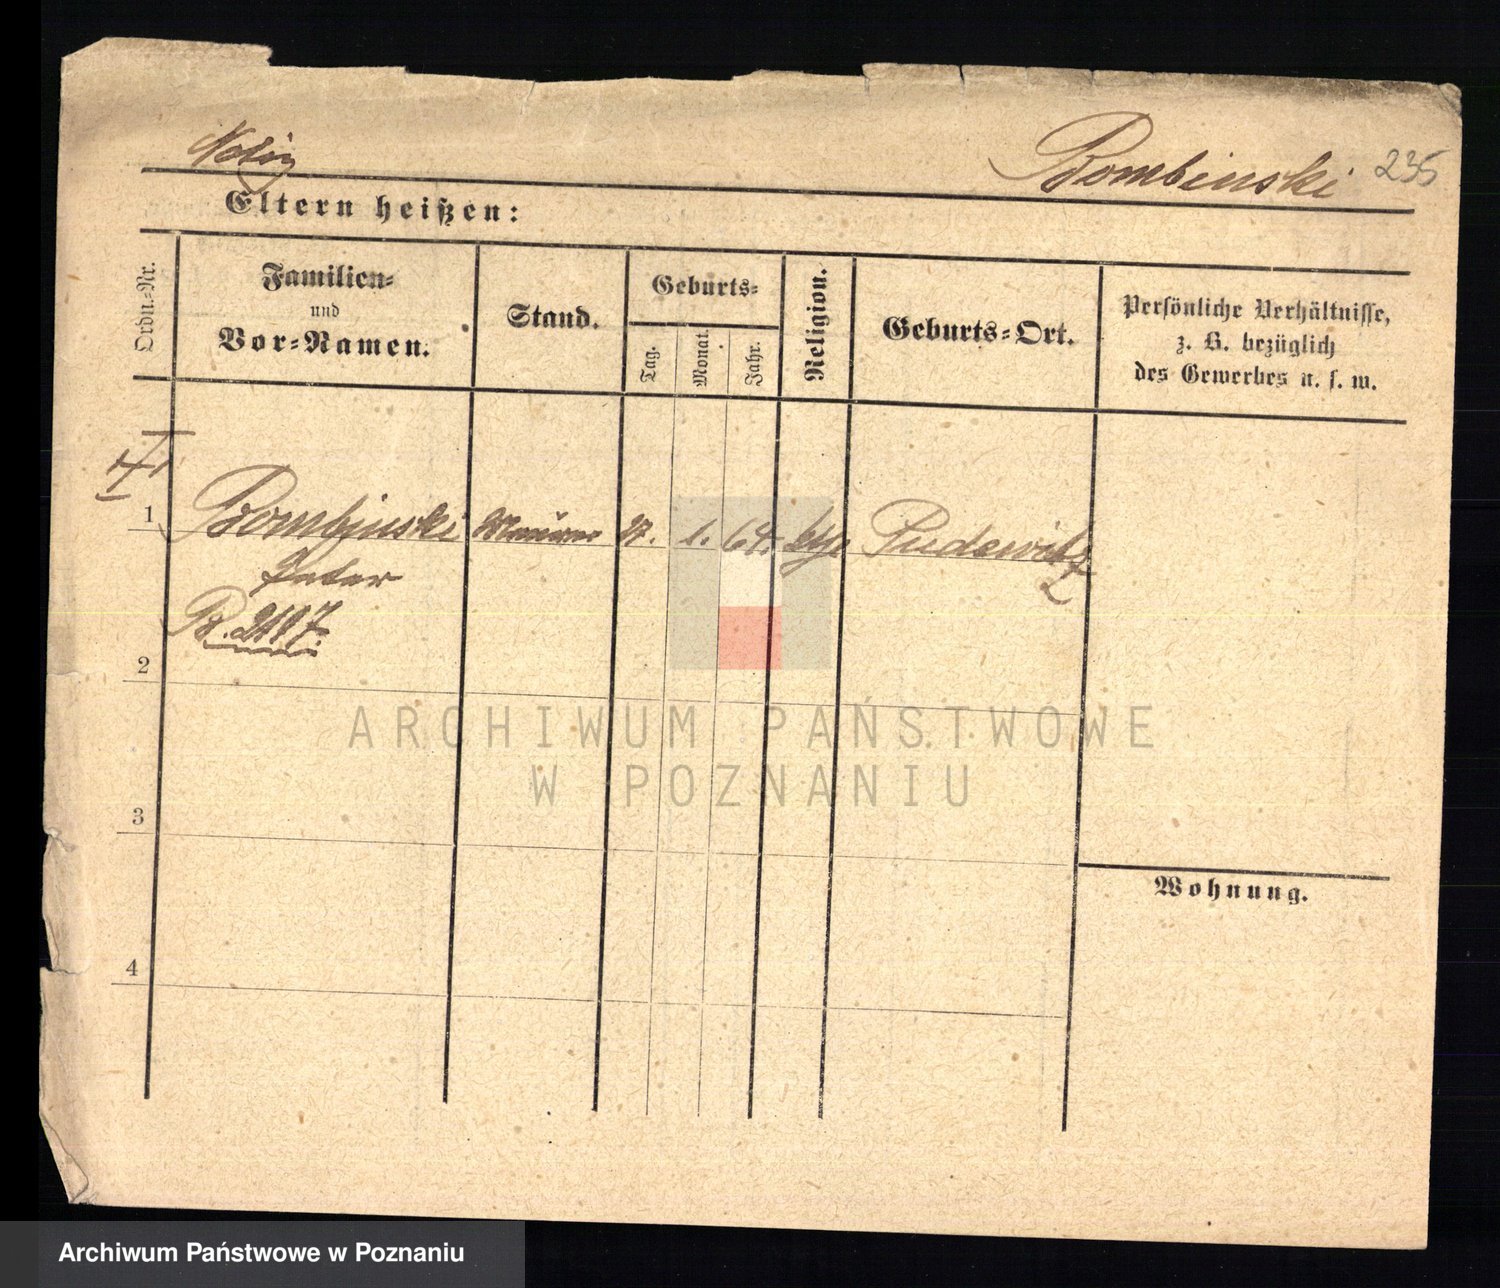 Notiz
Bombinski 235
Eltern heißen:
Ordn.-Nr.
Familien-
und
Vor-Namen.
Stand.
Geburts-
Tag.
Monat.
Jahr.
Religion.
Geburts-Ort.
Persönliche Verhältnisse,
z. B. bezüglich
des Gewerbes u. s. w.
1 Bombinski Maurer 1. 64. kth Pudewitz
Peter
2
3
4
Wohnung.
ARCHIWUM PAŃSTWOWE
W POZNANIU
Archiwum Państwowe w Poznaniu